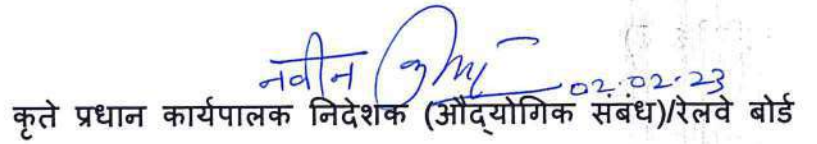 नवीन कुमार 02.02.23
कृते प्रधान कार्यपालक निदेशक (औद्योगिक संबंध)/रेलवे बोर्ड